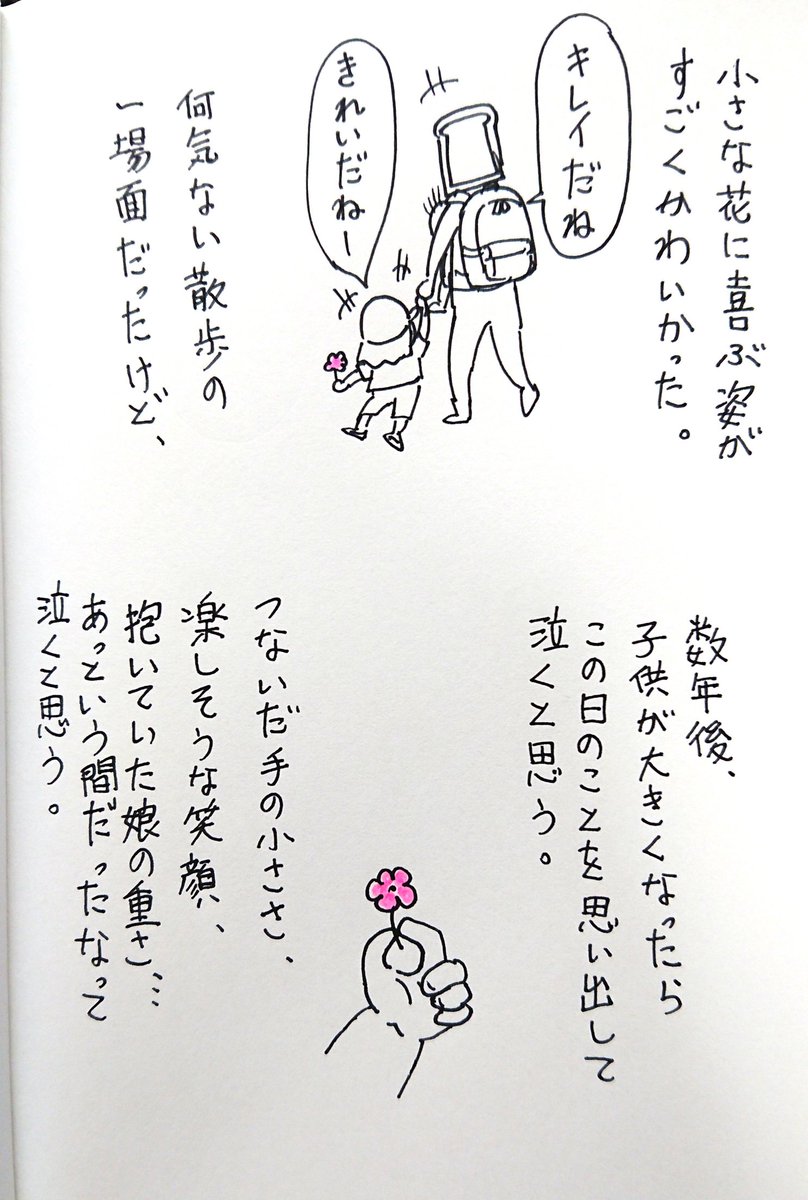 小さな花に喜ぶ姿が
すごくかわいかった。
キレイだね
きれいだねー
何気ない散歩の
一場面だったけど、
数年後、
子供が大きくなったら
この日のことを思い出して
泣くと思う。
つないだ手の小ささ、
楽しそうな笑顔、
抱いていた娘の重さ…
あっという間だったなって
泣くと思う。